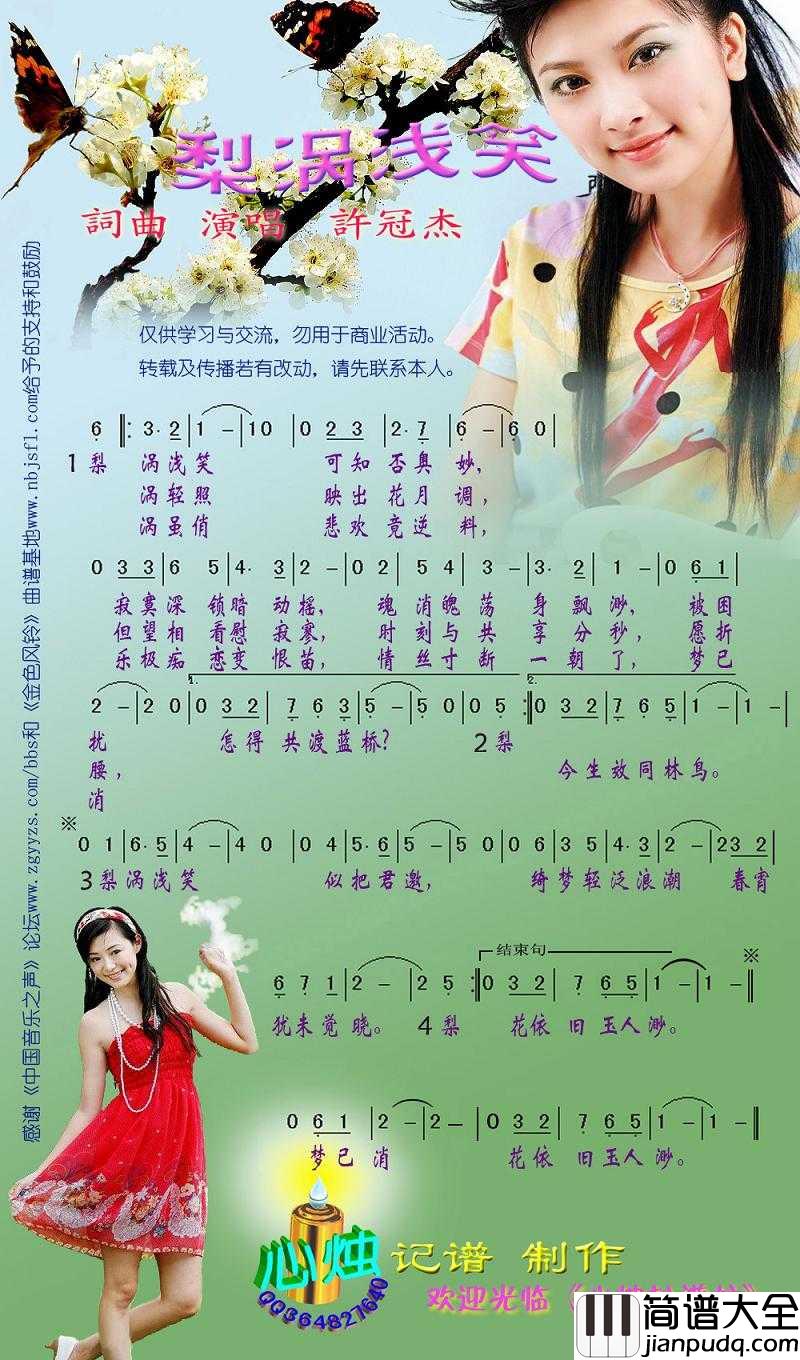 梨涡浅笑
詞曲 演唱 許冠杰
仅供学习与交流，勿用于商业活动。
转载及传播若有改动，请先联系本人。
感谢《中国音乐之声》论坛www.zgyyzs.com/bbs和《金色风铃》曲谱基地www.nbjsfl.com给予的支持和鼓励
6 ‖: 3· 2 | 1 - | 1 0 | 0 2 3 | 2· 7 | 6 - | 6 0 |
1梨 涡浅笑 可知否奥妙，
涡轻照 映出花月调，
涡虽俏 悲欢竟逆料，
0 3 3 | 6 5 | 4· 3 | 2 - | 0 2 | 5 4 | 3 - | 3· 2 | 1 - | 0 6 1 |
寂寞深锁暗动摇， 魂消魄荡身飘渺， 被困
但望相看慰寂寥， 时刻与共享分秒， 愿折
乐极痴恋变恨苗， 情丝寸断一朝了， 梦已
1. 2.
2 - | 2 0 | 0 3 2 | 7 6 3 | 5 - | 5 0 | 0 5 :‖ 0 3 2 | 7 6 5 | 1 - | 1 - |
扰 怎得共渡蓝桥? 2梨
腰， 今生效同林鸟。
消
※
0 1 | 6· 5 | 4 - | 4 0 | 0 4 | 5· 6 | 5 - | 5 0 | 0 6 | 3 5 | 4· 3 | 2 - | 2 3 2 |
3梨涡浅笑 似把君邀， 绮梦轻泛浪潮 春宵
结束句 ※
6 7 1 | 2 - | 2 5 :‖ 0 3 2 | 7 6 5 | 1 - | 1 - ‖
犹未觉晓。 4梨 花依旧玉人渺。
0 6 1 | 2 - | 2 - | 0 3 2 | 7 6 5 | 1 - | 1 - ‖
梦已消 花依旧玉人渺。
心烛 记谱 制作
QQ364827640
欢迎光临《
简谱大全
jianpudq.com